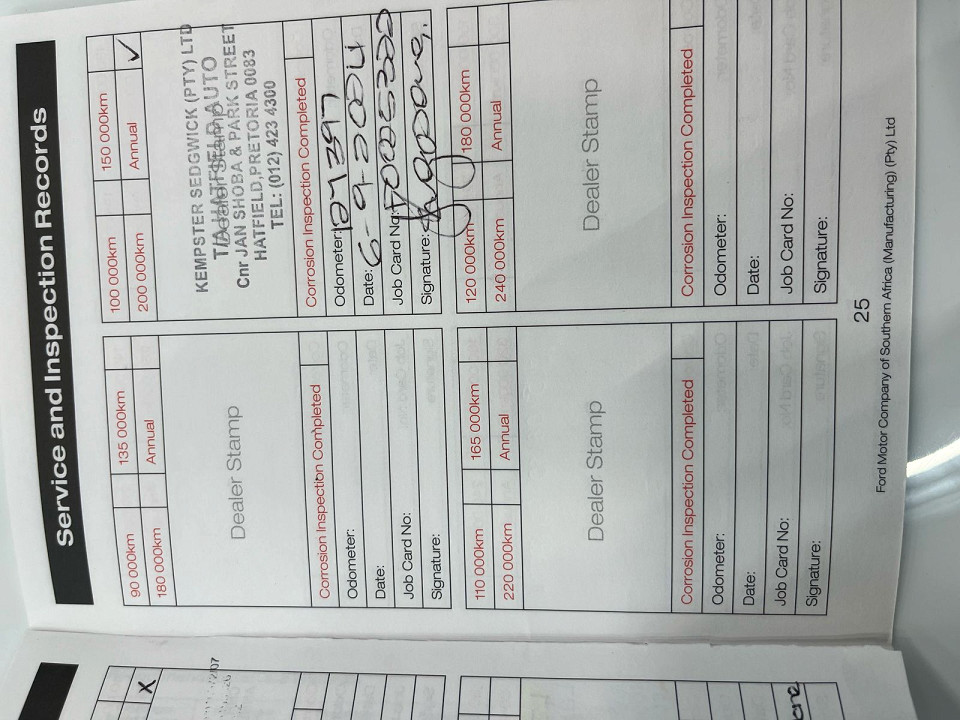 Service and Inspection Records
90 000km 135 000km
180 000km Annual
Dealer Stamp
Corrosion Inspection Completed
Odometer:
Date:
Job Card No:
Signature:
100 000km 150 000km
200 000km Annual ✓
Dealer Stamp
KEMPSTER SEDGWICK (PTY) LTD
T/A HATFIELD AUTO
Cnr JAN SHOBA & PARK STREET
HATFIELD, PRETORIA 0083
TEL: (012) 423 4300
Corrosion Inspection Completed
Odometer:
Date:
Job Card No:
Signature:
110 000km 165 000km
220 000km Annual
Dealer Stamp
Corrosion Inspection Completed
Odometer:
Date:
Job Card No:
Signature:
120 000km 180 000km
240 000km Annual
Dealer Stamp
Corrosion Inspection Completed
Odometer:
Date:
Job Card No:
Signature:
25
Ford Motor Company of Southern Africa (Manufacturing) (Pty) Ltd
X